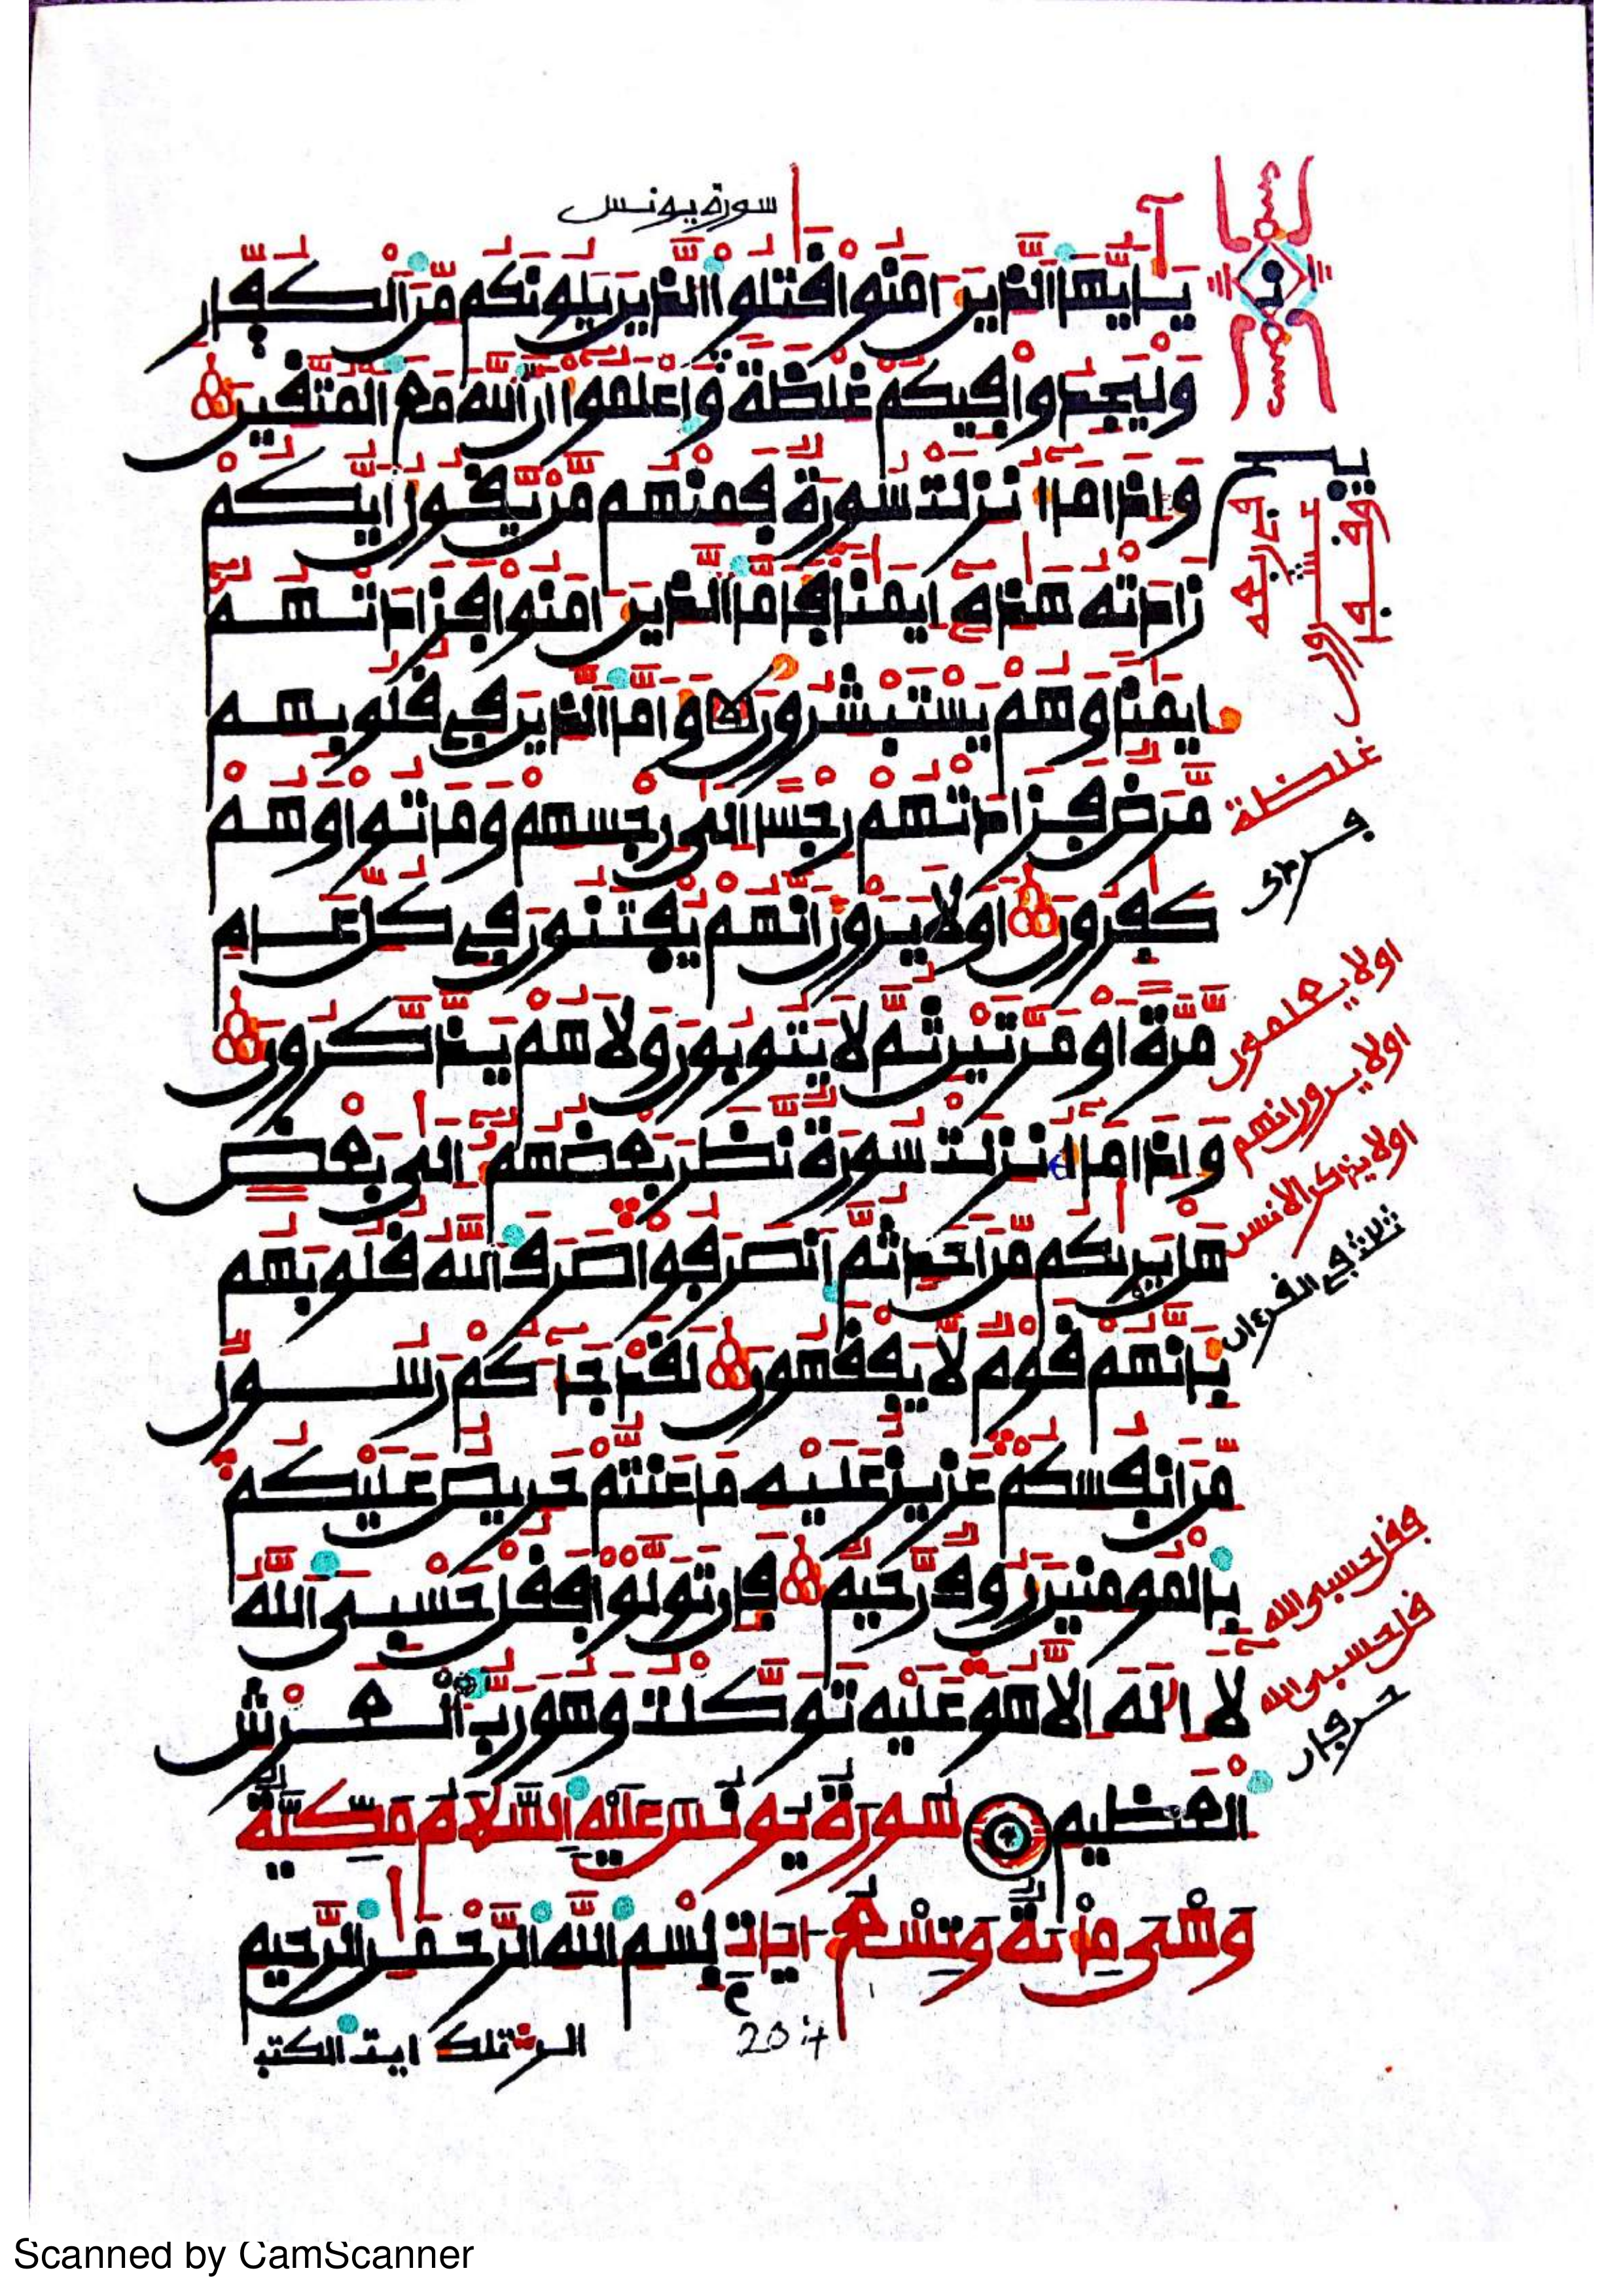 سورة يونس
يَٰٓأَيُّهَا ٱلذِينَ ءَامَنُوا قَٰتِلُوا ٱلذِينَ يَلُونَكُم مِّنَ ٱلْكُفَّارِ
وَلْيَجِدُوا فِيكُمْ غِلْظَةً وَٱعْلَمُوا أَنَّ ٱللَّهَ مَعَ ٱلْمُتَّقِينَ
وَإِذَا مَا أُنزِلَتْ سُورَةٌ فَمِنْهُم مَّن يَّقُولُ أَيُّكُمْ
زَادَتْهُ هَٰذِهِ إِيمَٰنًا فَأَمَّا ٱلذِينَ ءَامَنُوا فَزَادَتْهُمْ
إِيمَٰنًا وَهُمْ يَسْتَبْشِرُونَ وَأَمَّا ٱلذِينَ فِي قُلُوبِهِم
مَّرَضٌ فَزَادَتْهُمْ رِجْسًا إِلَىٰ رِجْسِهِمْ وَمَاتُوا وَهُمْ
كَٰفِرُونَ أَوَلَا يَرَوْنَ أَنَّهُمْ يُفْتَنُونَ فِي كُلِّ عَامٍ
مَّرَّةً أَوْ مَرَّتَيْنِ ثُمَّ لَا يَتُوبُونَ وَلَا هُمْ يَذَّكَّرُونَ
وَإِذَا مَا أُنزِلَتْ سُورَةٌ نَّظَرَ بَعْضُهُمْ إِلَىٰ بَعْضٍ
هَلْ يَرَىٰكُم مِّنْ أَحَدٍ ثُمَّ ٱنصَرَفُوا صَرَفَ ٱللَّهُ قُلُوبَهُم
بِأَنَّهُمْ قَوْمٌ لَّا يَفْقَهُونَ لَقَدْ جَآءَكُمْ رَسُولٌ
مِّنْ أَنفُسِكُمْ عَزِيزٌ عَلَيْهِ مَا عَنِتُّمْ حَرِيصٌ عَلَيْكُم
بِٱلْمُومِنِينَ رَءُوفٌ رَّحِيمٌ فَإِن تَوَلَّوْا فَقُلْ حَسْبِيَ ٱللَّهُ
لَا إِلَٰهَ إِلَّا هُوَ عَلَيْهِ تَوَكَّلْتُ وَهُوَ رَبُّ ٱلْعَرْشِ
ٱلْعَظِيمِ سُورَةُ يُونُسَ عَلَيْهِ ٱلسَّلَامُ مَكِّيَّةٌ
وَهْيَ مِائَةٌ وَتِسْعُ ءَايَاتٍ بِسْمِ ٱللَّهِ ٱلرَّحْمَٰنِ ٱلرَّحِيمِ
الر تلك ايت الكتب
غلظة
اولا يعلمون
اولا يرون انهم
اولا يذكر الانسن
ثلاث في القرءان
فقل حسبي الله
قل حسبي الله
حرفان
Scanned by CamScanner